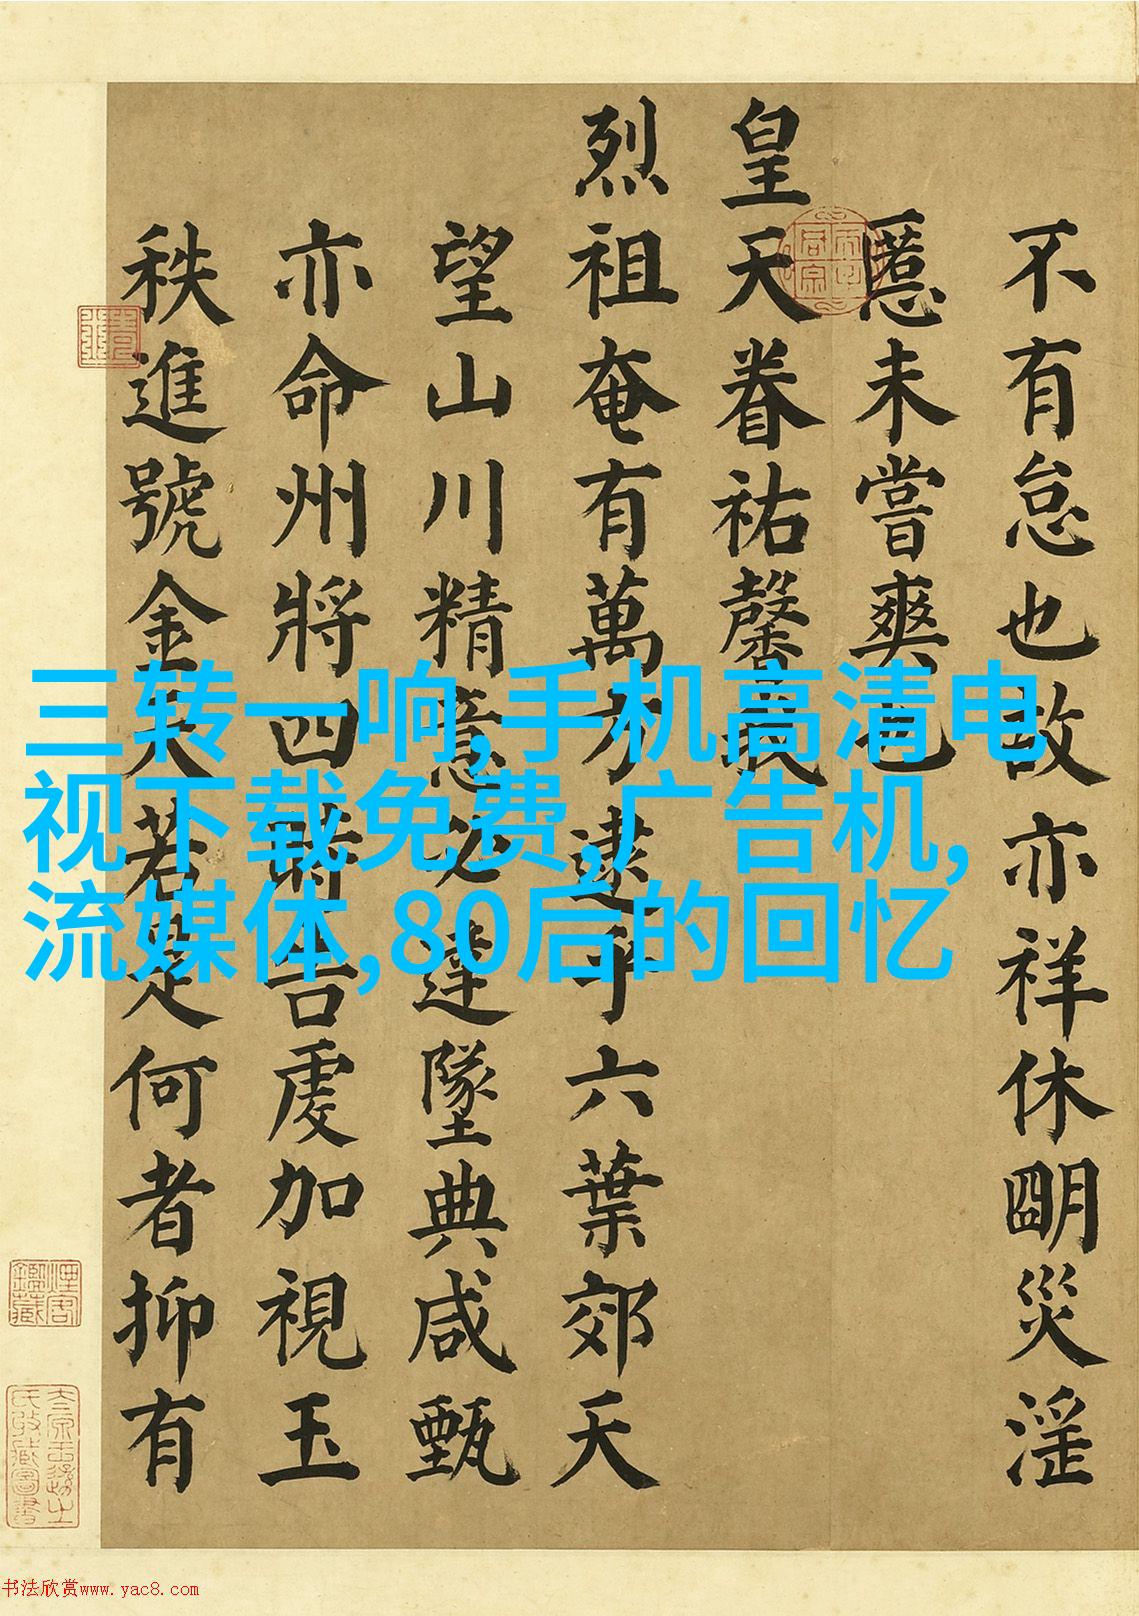 不有怠也故亦祥休朙災淫
慝未嘗爽也
皇天眷祐馨我
烈祖奄有萬方逮乎六葉郊天
望山川精意必達墜典咸甄
亦命州將四時告虔加視玉
秩進號金天若是何者抑有
三转一响,手机高清电
视下载免费,广告机,
流媒体,80后的回忆
书法欣赏www.yac8.com